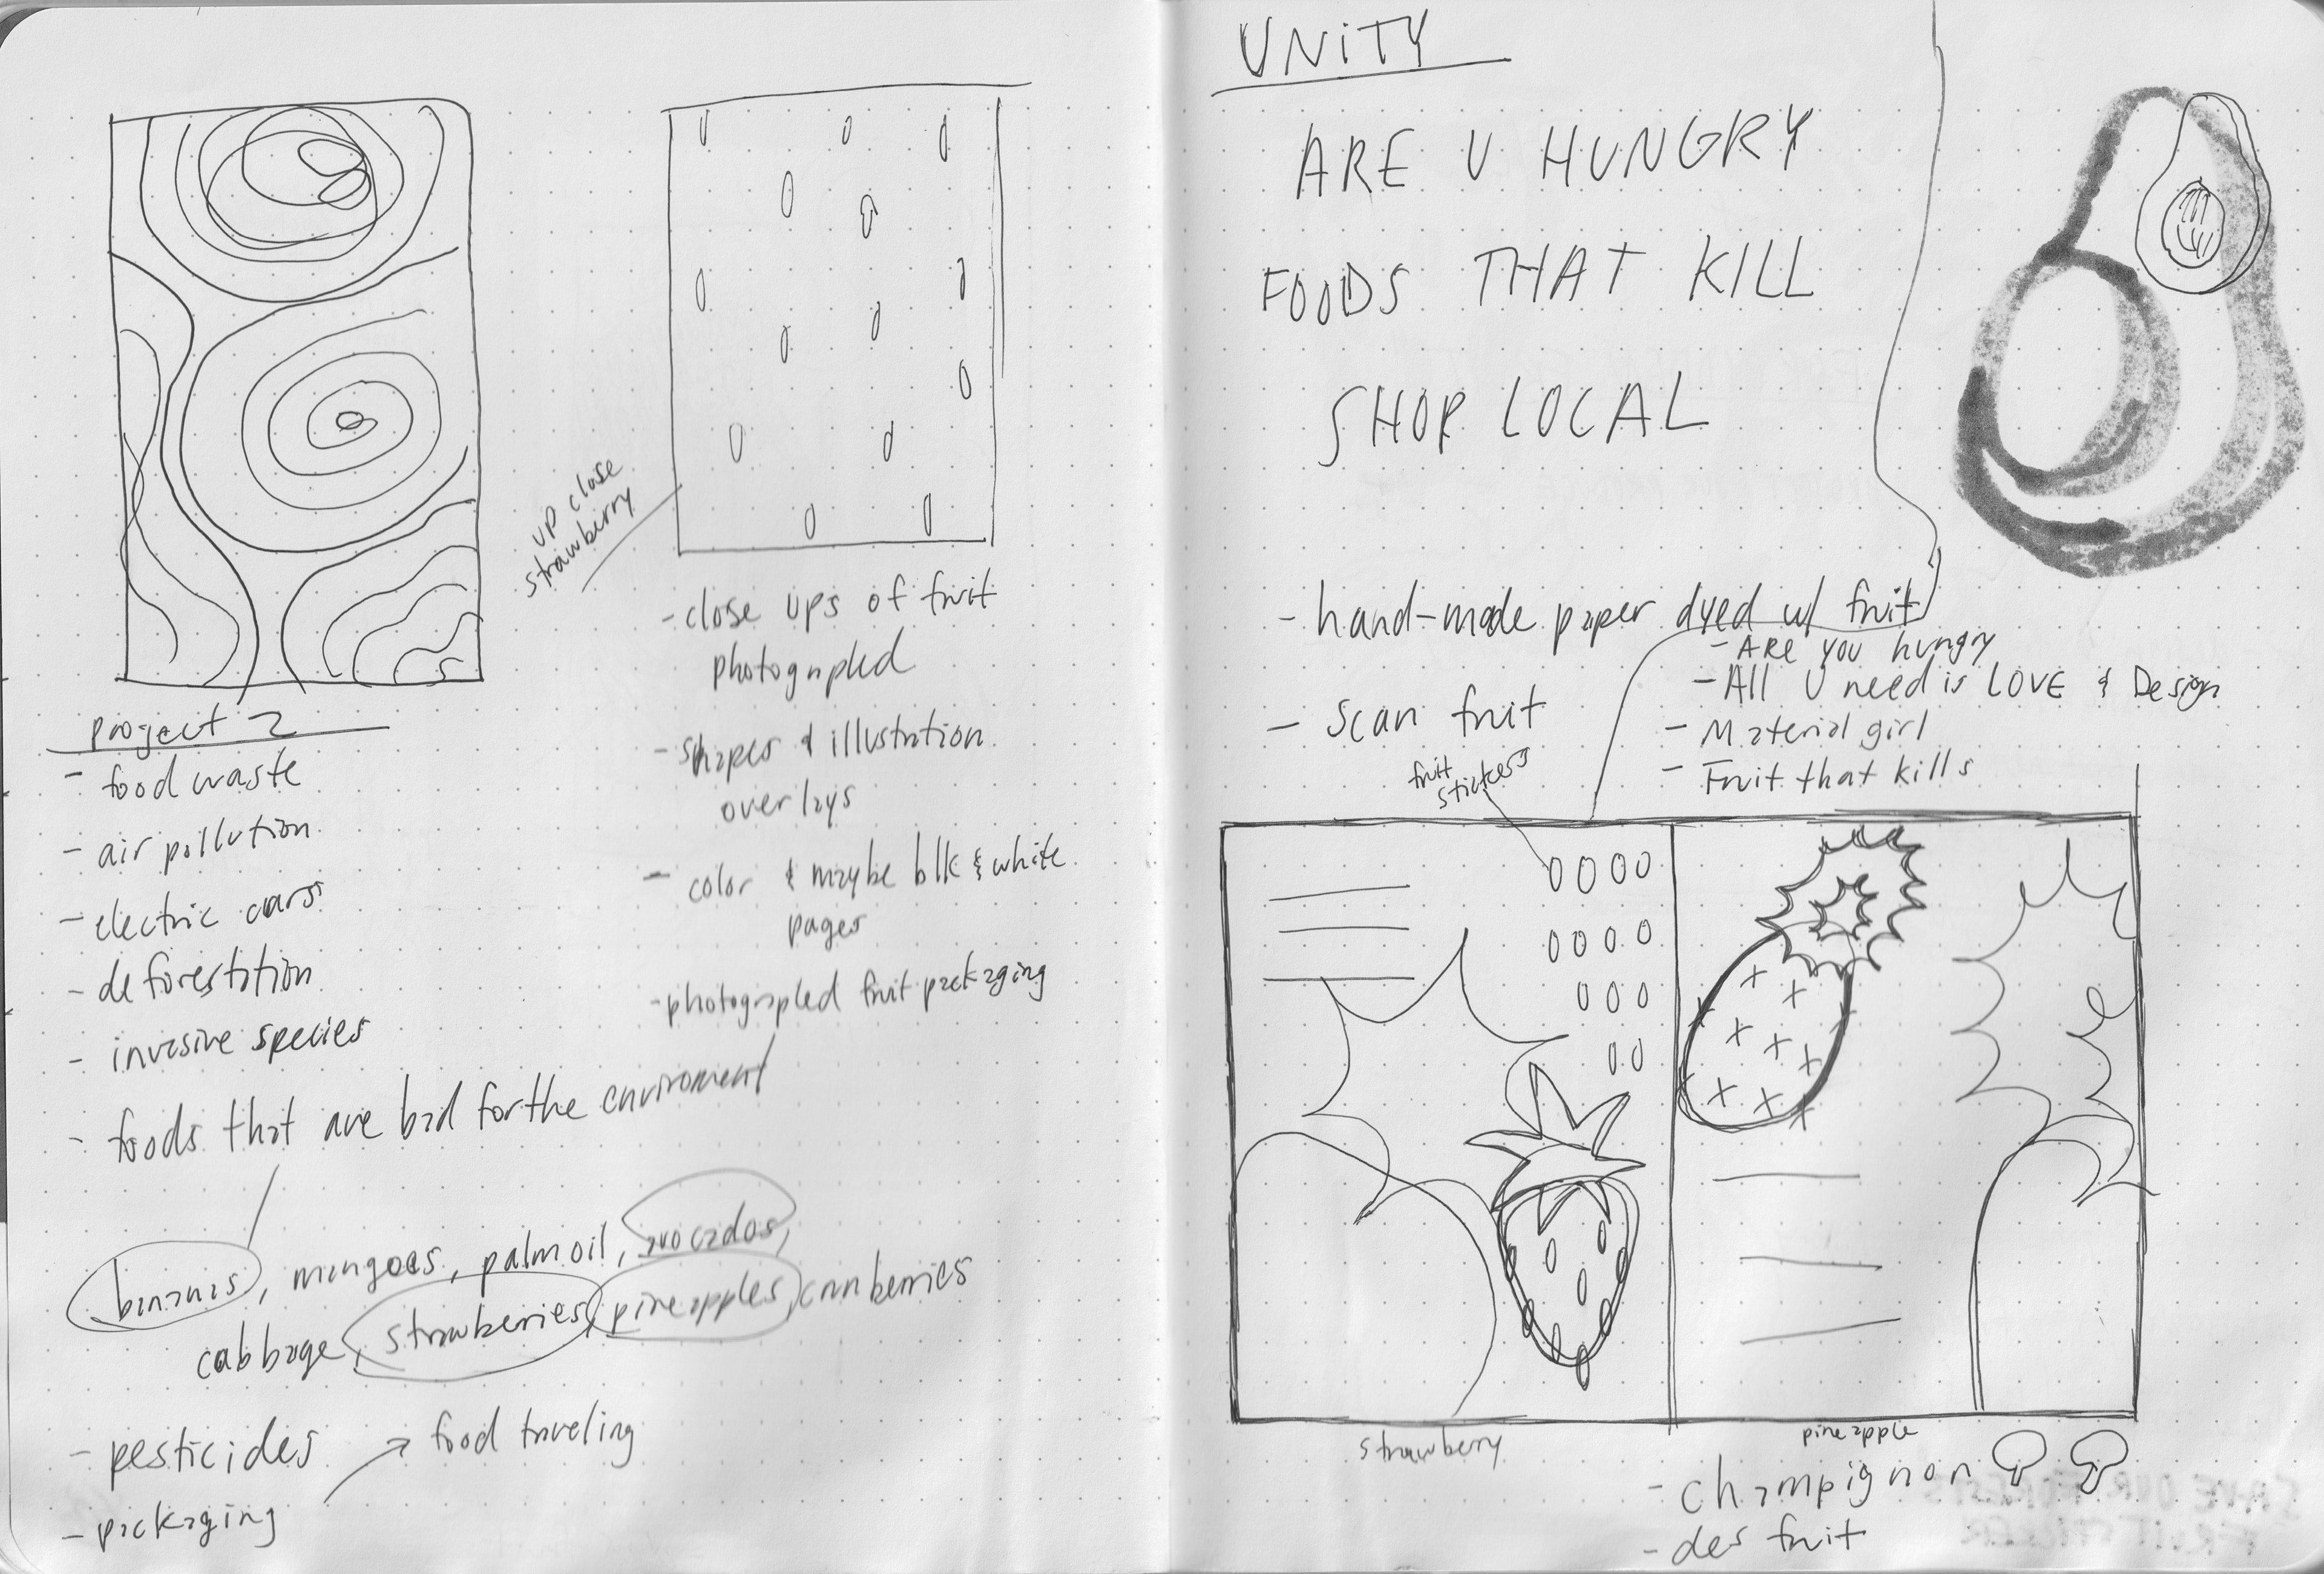 up close
strawberry
project 2
- food waste
- air pollution
- electric cars
- deforestation
- invasive species
- foods that are bad for the enviroment
bananas, mangoes, palm oil, avocados,
cabbage, strawberries, pineapples, cranberries
- pesticides
→ food traveling
- packaging
- close ups of fruit
photograpled
- shapes & illustration
overlays
- color & maybe blk & white
pages
- photograpled fruit packaging
UNiTY
ARE U HUNGRY
FOODS THAT KILL
SHOP LOCAL
- hand-made paper dyed w/ fruit
- ARE YOU hungry
- All U need is LOVE & Design
- Material girl
- Fruit that kills
- Scan fruit
fruit
stickers
strawberry
pineapple
- champignon
- des fruit
SAVE OUR FORESTS
FRUIT STICKER